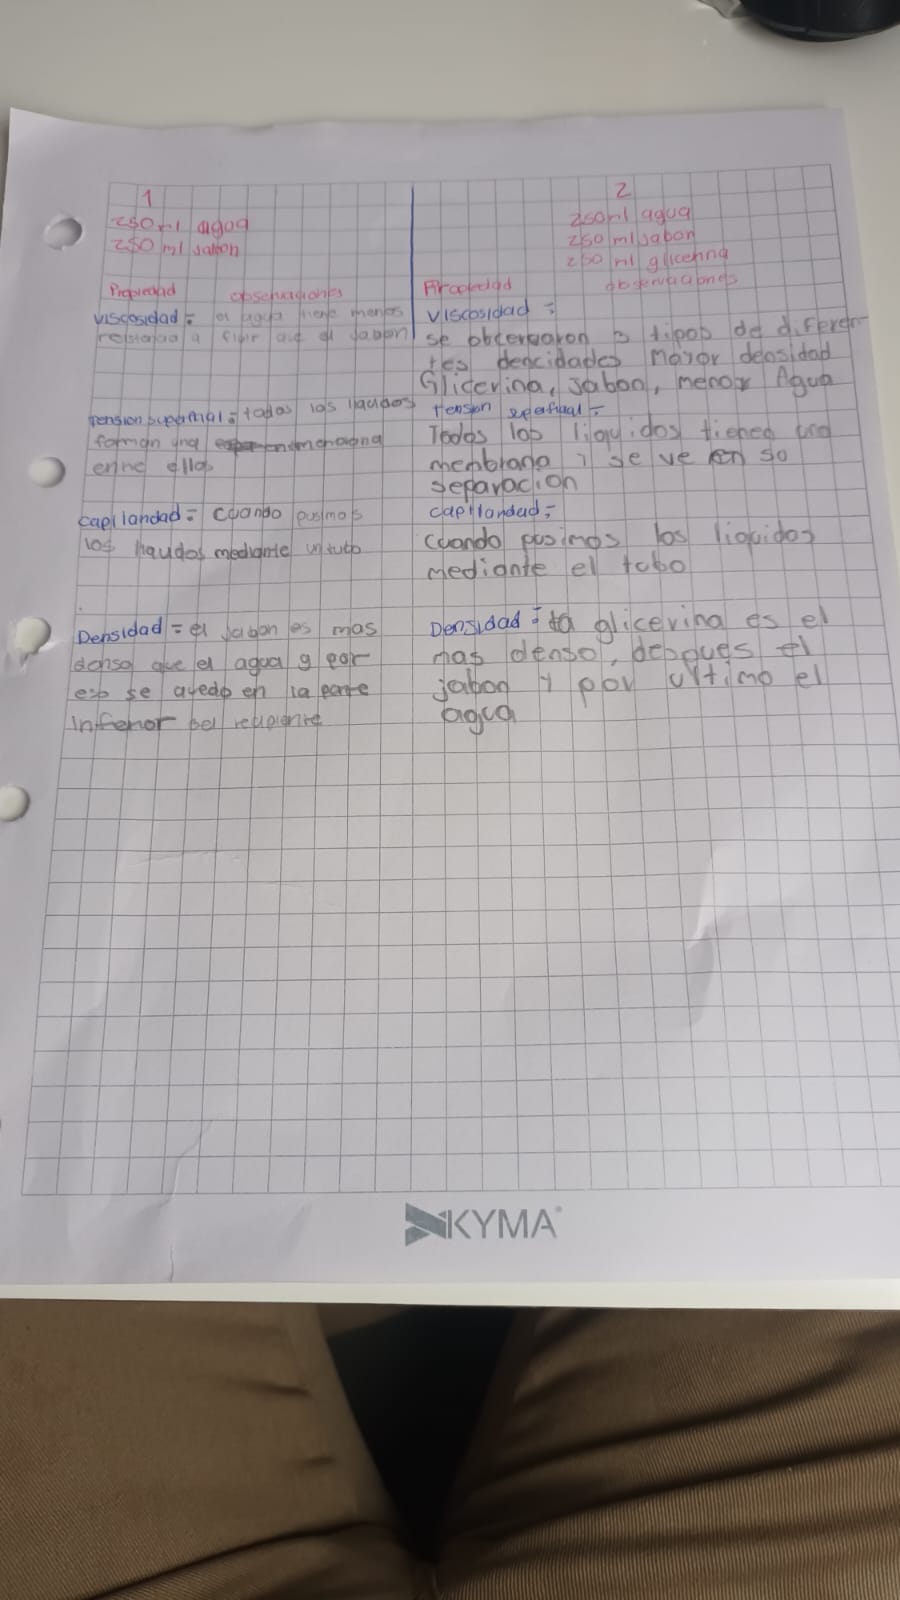 1
250 ml agua
250 ml jabon
Propiedad observaciones
viscosidad = el agua tiene menos
a fluir que el jabon
tension = todas los liquidos
forman una
entre ellos
capilaridad = cuando pusimos
los liquidos mediante un tubo
Densidad = el jabon es mas
denso que el agua y por
eso se quedo en la parte
inferior del recipiente
2
250 ml agua
250 ml jabon
250 ml glicerina
Propiedad observaciones
viscosidad =
se obcervaron 3 tipos de diferen
tes dencidades Mayor densidad
Glicerina, jabon, menor Agua
tension =
Todos los liquidos tienen una
menbrana y se ve en so
separacion
capilaridad =
cuando pusimos los liquidos
mediante el tubo
Densidad = la glicerina es el
mas denso, despues el
jabon y por ultimo el
agua
KYMA